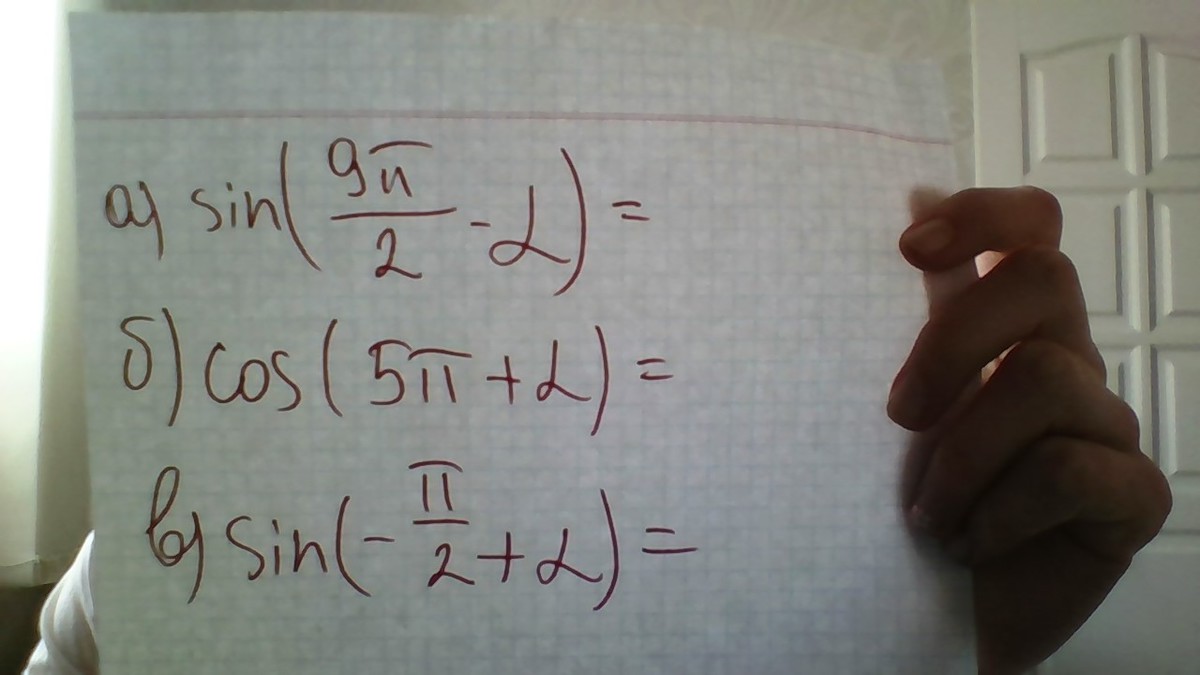 а) sin(9π/2 - α) =
б) cos(5π + α) =
в) sin(-π/2 + α) =